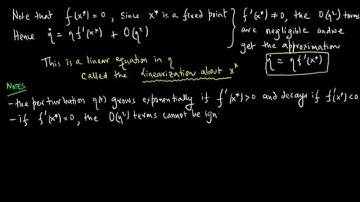 Note that f(x*) = 0, since x* is a fixed point
Hence η̇ = η f'(x*) + O(η²)
f'(x*) ≠ 0, the O(η²) terms
are negligible and we
get the approximation
η̇ = η f'(x*)
This is a linear equation in η
Called the linearization about x*
NOTES
- the perturbation η(t) grows exponentially if f'(x*) > 0 and decays if f'(x*) < 0
- if f'(x*) = 0, the O(η²) terms cannot be ign